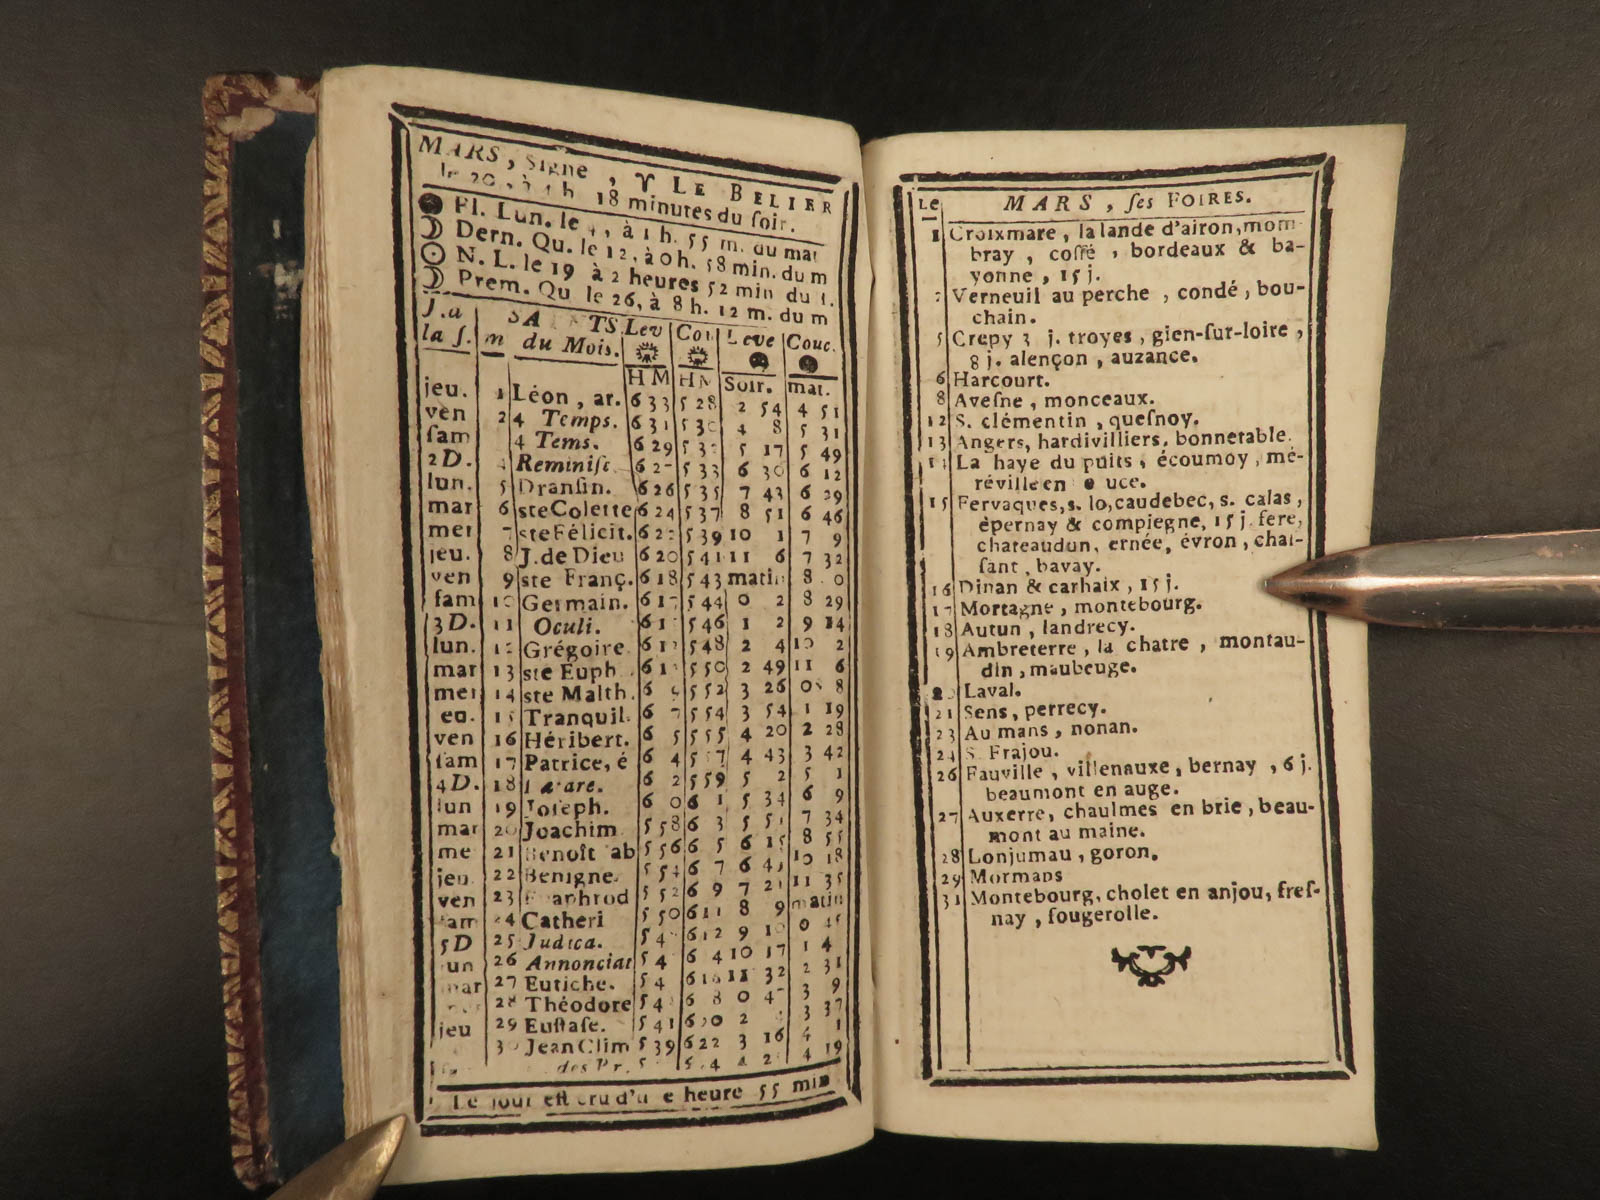 MARS, Signe, ♈ LE BELIER
le 20, à 1 h. 18 minutes du ſoir.
Pl. Lun. le 4, à 1 h. 55 m. du mat
Dern. Qu. le 12, à 0 h. 58 min. du m
N. L. le 19 à 2 heures 52 min du ſ.
Prem. Qu le 26, à 8 h. 12 m. du m
J. d SAINTS Lev Cou Leve Couc.
la ſ. m du Mois.
H M H M Soir. mat.
jeu. 1 Léon, ar. 6 33 5 28 2 54 4 51
ven 2 4 Temps. 6 31 5 30 4 8 5 31
ſam 4 Tems. 6 29 5 32 5 17 5 49
2 D. 4 Reminiſc 6 27 5 33 6 30 6 12
lun. 5 Dranſin. 6 26 5 35 7 43 6 29
mar 6 ste Colette 6 24 5 37 8 51 6 46
mer 7 ste Félicit. 6 22 5 39 10 1 7 9
jeu. 8 J. de Dieu 6 20 5 41 11 6 7 32
ven 9 ste Franç. 6 18 5 43 matin 8 0
ſam 10 Germain. 6 17 5 44 0 2 8 29
3 D. 11 Oculi. 6 1 5 46 1 2 9 14
lun. 12 Grégoire 6 1 5 48 2 4 10 2
mar 13 ste Euph 6 1 5 50 2 49 11 6
mer 14 ste Malth. 6 9 5 52 3 26 0 8
eu. 15 Tranquil. 6 7 5 54 3 54 1 19
ven 16 Héribert. 6 5 5 55 4 20 2 28
ſam 17 Patrice, é 6 4 5 57 4 43 3 42
4 D. 18 Lætare. 6 2 5 59 5 2 5 1
lun 19 Joſeph. 6 0 6 1 5 34 6 9
mar 20 Joachim 5 58 6 3 5 51 7 34
me 21 Benoît ab 5 56 6 5 6 15 8 55
jeu. 22 Benigne. 5 54 6 7 6 45 10 18
ven 23 Epaphrod 5 52 6 9 7 21 11 35
ſam 24 Catheri 5 50 6 11 8 9 matin
5 D 25 Judica. 5 4 6 12 9 10 0 45
lun 26 Annonciat 5 4 6 4 10 17 1 4
mar 27 Eutiche. 5 4 6 16 11 32 2 31
28 Théodore 5 4 6 8 0 47 3 9
jeu 29 Euſtaſe. 5 41 6 20 2 3 37
30 Jean Clim 5 39 6 22 3 16 4 1
des Pr. 5 4 2 4 19
Le jour eſt cru d'u e heure 55 min
Le MARS, ſes FOIRES.
1 Croixmare, la lande d'airon, mom-
bray, coſſé, bordeaux & ba-
yonne, 15 j.
2 Verneuil au perche, condé, bou-
chain.
5 Crepy 3 j. troyes, gien-ſur-loire,
8 j. alençon, auzance.
6 Harcourt.
8 Aveſne, monceaux.
12 S. clémentin, queſnoy.
13 Angers, hardivilliers, bonnetable.
14 La haye du puits, écoumoy, mé-
réville en uce.
15 Fervaques, s. lo, caudebec, s. calas,
épernay & compiegne, 15 j. fere,
chateaudun, ernée, évron, chaſ-
ſant, bavay.
16 Dinan & carhaix, 15 j.
17 Mortagne, montebourg.
18 Autun, landrecy.
19 Ambreterre, la chatre, montau-
din, maubeuge.
20 Laval.
21 Sens, perrecy.
23 Au mans, nonan.
24 S. Frajou.
26 Fauville, villenauxe, bernay, 6 j.
beaumont en auge.
27 Auxerre, chaulmes en brie, beau-
mont au maine.
28 Lonjumau, goron.
29 Mormans
31 Montebourg, cholet en anjou, freſ-
nay, fougerolle.